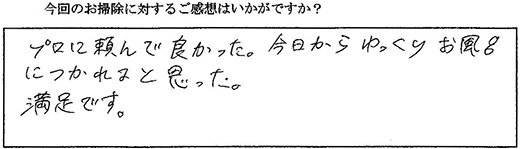 今回のお掃除に対するご感想はいかがですか？
プロに頼んで良かった。今日からゆっくりお風呂
につかれると思った。
満足です。